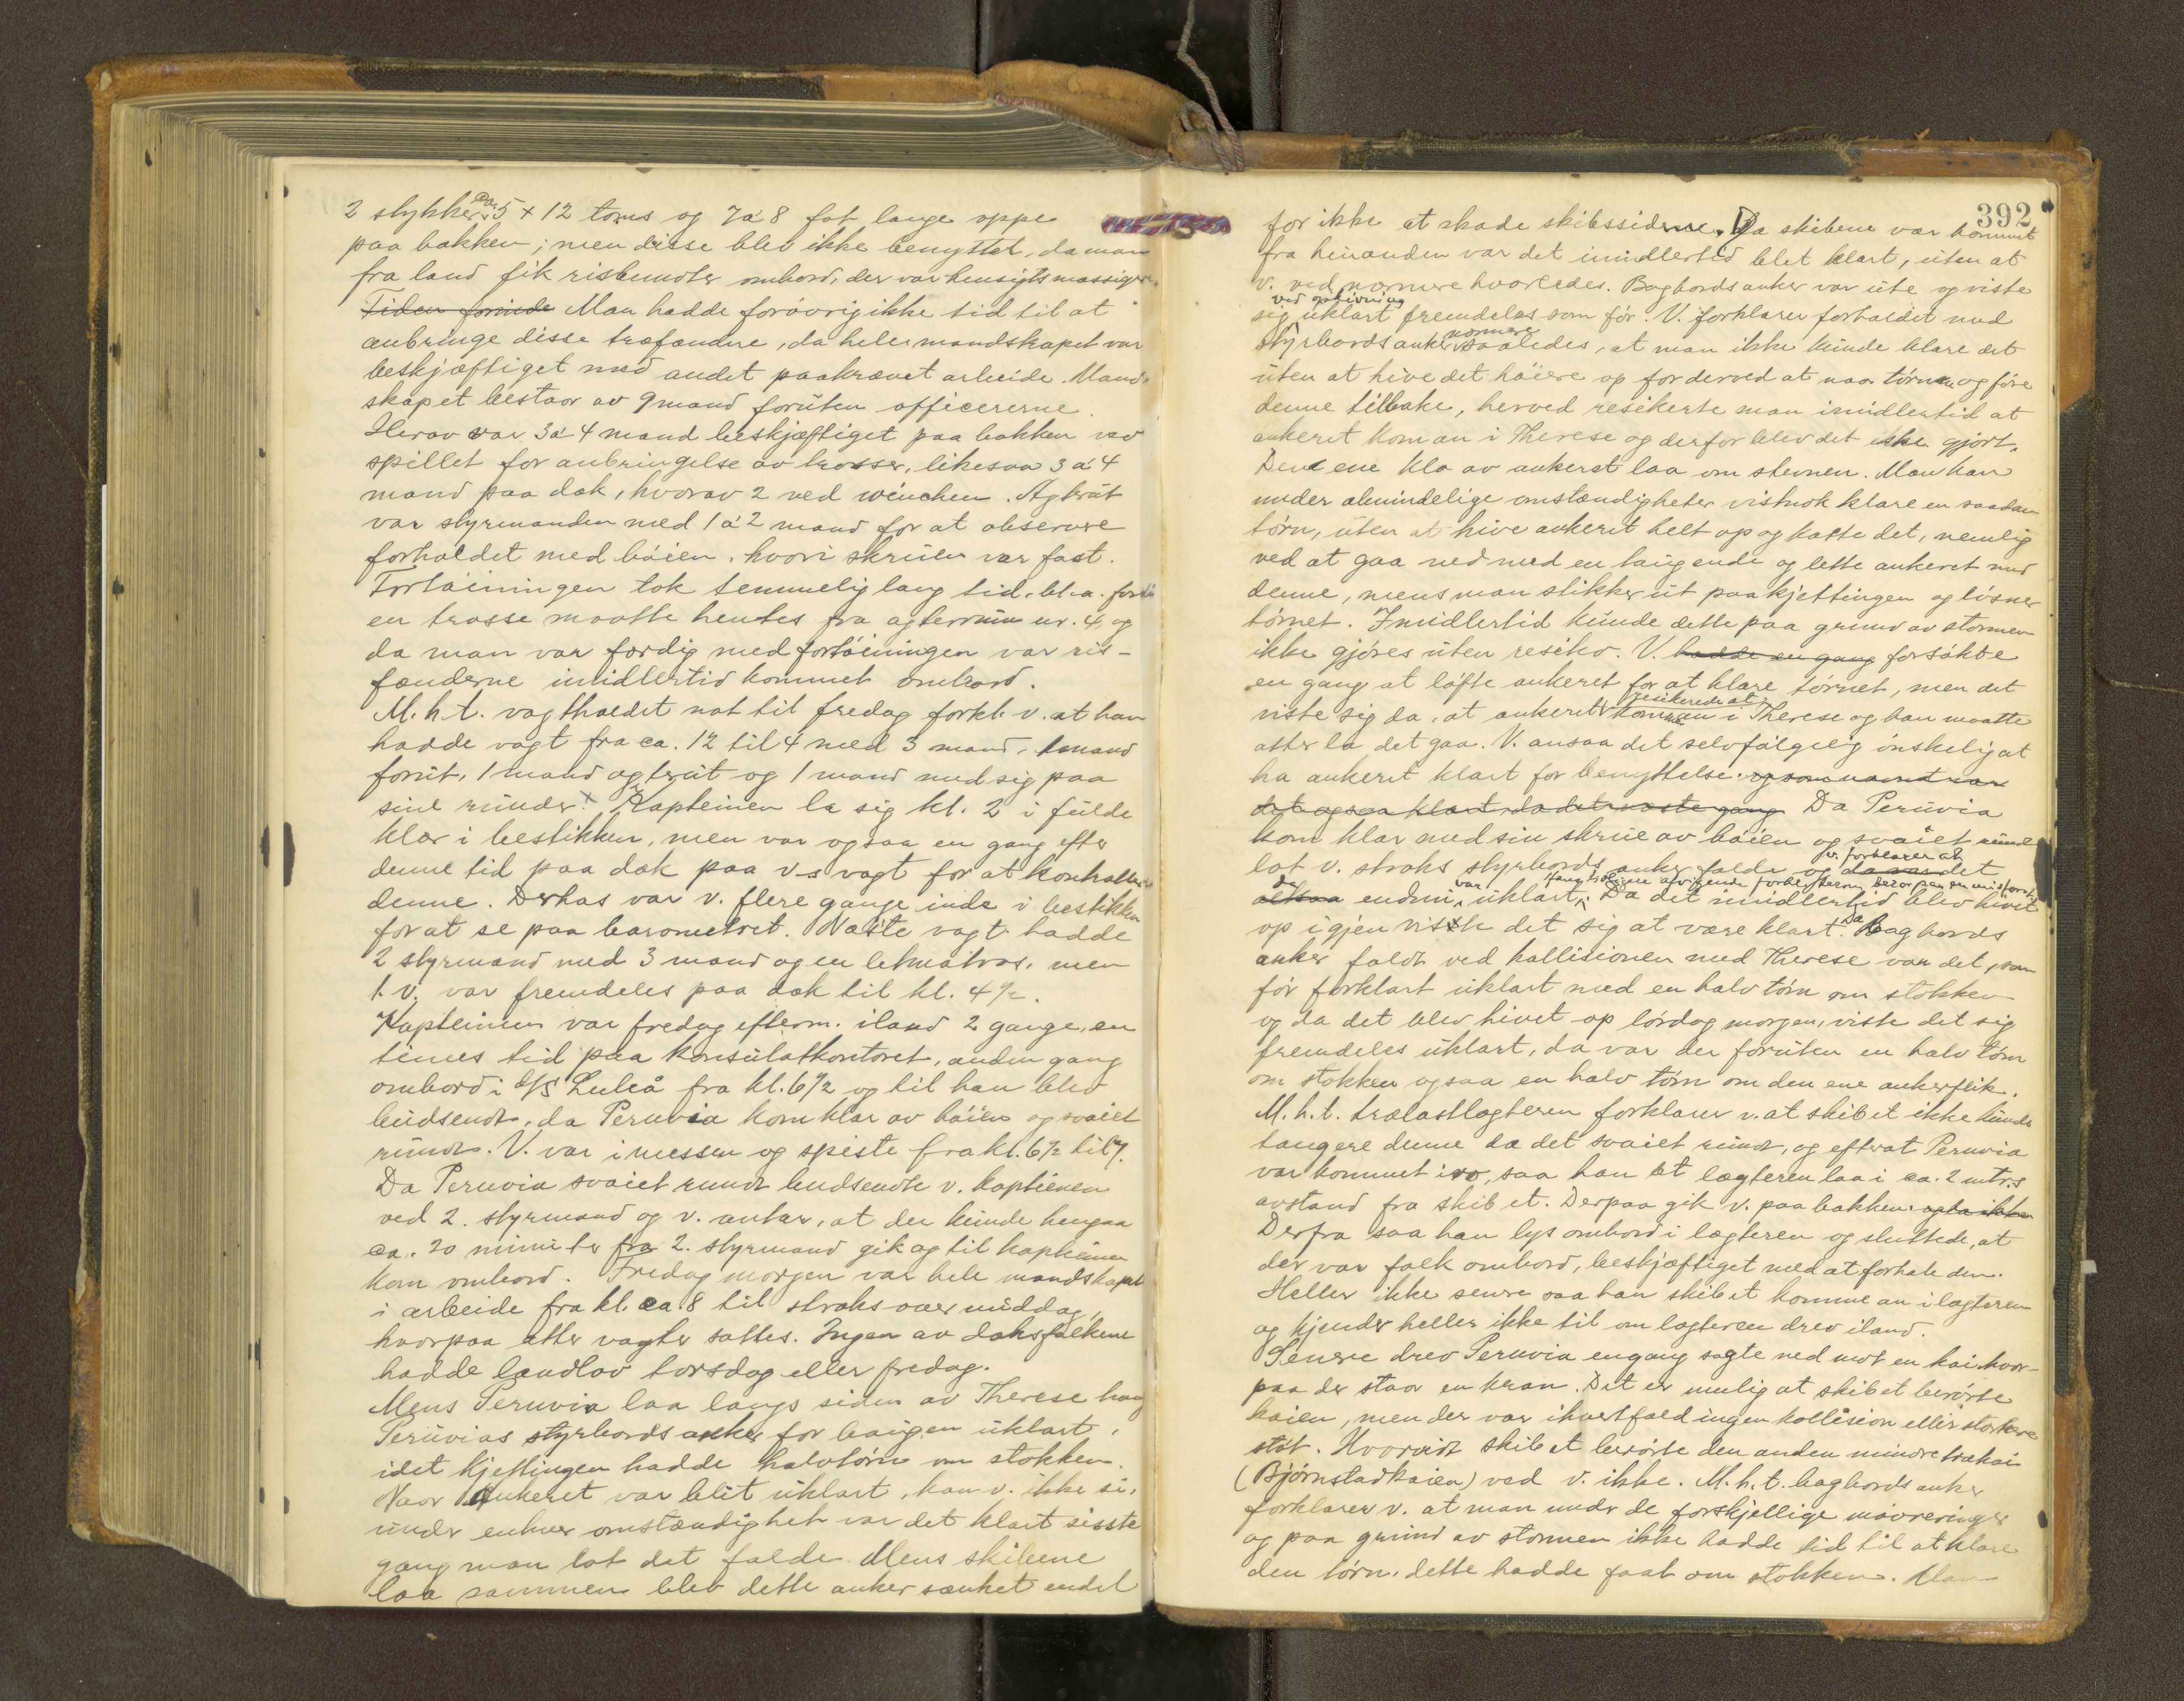 2 stykker paa 5 x 12 toms og 7 á 8 fot lange oppe
paa bakken; men disse blev ikke benyttet, da man
fra land fik risbundter ombord, der var hensigtsmæssigere.
Tiden Man hadde forövrig ikke tid til at
anbringe disse træfendere, da hele mandskapet var
beskjæftiget med andet paakrævet arbeide. Mand-
skapet bestaar av 9 mand foruten officererne.
Herav var 3 á 4 mand beskjæftiget paa bakken ved
spillet for anbringelse av trosser, likesaa 3 á 4
mand paa dæk, hvorav 2 ved winchen. Agterut
var styrmanden med 1 á 2 mand for at observere
forholdet med böien, hvori skruen var fast.
Fortöiningen tok temmelig lang tid, bl.a. fordi
en trosse maatte hentes fra agterrum nr. 4, og
da man var færdig med fortöiningen var ris-
fenderne imidlertid kommet ombord.
M.h.t. vagtholdet nat til fredag forkl. v. at han
hadde vagt fra ca. 12 til 4 med 3 mand, 1 mand
forut, 1 mand agterut og 1 mand med sig paa
sine runder. Kapteinen la sig kl. 2 i fulde
klær i bestikken, men var ogsaa en gang efter
denne tid paa dæk paa v-s vagt for at kontrollere
denne. Desuten var v. flere gange inde i bestikken
for at se paa barometret. Næste vagt hadde
2 styrmand med 3 mand og en letmatros, men
1. v. var fremdeles paa dæk til kl. 4½.
Kapteinen var fredag efterm. iland 2 gange, en
times tid paa konsulatkontoret, anden gang
ombord i d/s Luleå fra kl. 6½ og til han blev
budsendt, da Peruvia kom klar av böien og svaiet
rundt. V. var i messen og spiste fra kl. 6½ til 7.
Da Peruvia svaiet rundt budsendte v. kapteinen
ved 2. styrmand og v. antar, at der kunde hengaa
ca. 20 minuter fra 2. styrmand gik og til kapteinen
kom ombord. Fredag morgen var hele mandskapet
i arbeide fra kl. ca. 8 til straks over middag,
hvorpaa atter vagter sattes. Ingen av dæksfolkene
hadde landlov torsdag eller fredag.
Mens Peruvia laa langs siden av Therese hang
Peruvias styrbords anker for baugen uklart,
idet kjettingen hadde halvtörn om stokken.
Naar ankeret var blit uklart, kan v. ikke si,
under enhver omstændighet var det klart sisste
gang man lot det falde. Mens skibene
laa sammen blev dette anker sænket endel
392
for ikke at skade skibssiderne. Da skibene var kommet
fra hinanden var det imidlertid blet klart, uten at
v. ved nærmere hvorledes. Bagbords anker var ute og viste
sig ved ophivning uklart fremdeles som för. V. forklarer forholdet med
styrbords anker nærmere saaledes, at man ikke kunde klare det
uten at hive det höiere op for derved at naa törnen og före
denne tilbake, herved resikerte man imidlertid at
ankeret kom an i Therese og derfor blev det ikke gjort.
Den ene klo av ankeret laa om stevnen. Man kan
under almindelige omstændigheter vistnok klare en saadan
törn, uten at hive ankeret helt op og katte det, nemlig
ved at gaa ned med en taugende og lette ankeret med
denne, mens man stikker ut paa kjettingen og lösner
törnet. Imidlertid kunde dette paa grund av stormen
ikke gjöres uten resiko. V. hadde en gang forsökte
en gang at löfte ankeret for at klare törnet, men det
viste sig da, at ankeret resikerede at komme an i Therese og han maatte
atter la det gaa. V. ansaa det selvfölgelig önskelig at
ha ankeret klart for benyttelse. og som nævnt var
det ogsaa klart da det næste gang Da Peruvia
kom klar med sin skrue av böien og svaiet rundt
lot v. straks styrbords anker falde og da var det v. forklarer at
da altsaa endnu var uklart, Da det imidlertid blev hivet
op igjen visste det sig at være klart. Da Bagbords
anker faldt ved kollisionen med Therese var det, som
för forklart uklart med en halv törn om stokken
og da det blev hivet op lördag morgen, viste det sig
fremdeles uklart, da var der foruten en halv törn
om stokken ogsaa en halv törn om den ene ankerflik.
M.h.t. trælastlægteren forklarer v. at skibet ikke kunde
tangere denne da det svaiet rundt, og efterat Peruvia
var kommet i ro, saa han at lægteren laa i ca. 2 mtr.s
avstand fra skibet. Derpaa gik v. paa bakken.
Derfra saa han lys ombord i lægteren og sluttede, at
der var folk ombord, beskjæftiget med at forhale den.
Heller ikke senere saa han skibet komme an i lægteren
og kjender heller ikke til om lægteren drev iland.
Senere drev Peruvia engang sagte ned mot en kai hvor-
paa der staar en kran. Det er mulig at skibet berörte
kaien, men der var ihvertfald ingen kollision eller sterkere
stöt. Hvorvidt skibet berörte den anden mindre trækai
(Björnstadkaien) ved v. ikke. M.h.t. bagbords anker
forklarer v. at man under de forskjellige mövreringer
og paa grund av stormen ikke hadde tid til at klare
den törn, dette hadde faat om stokken. Man